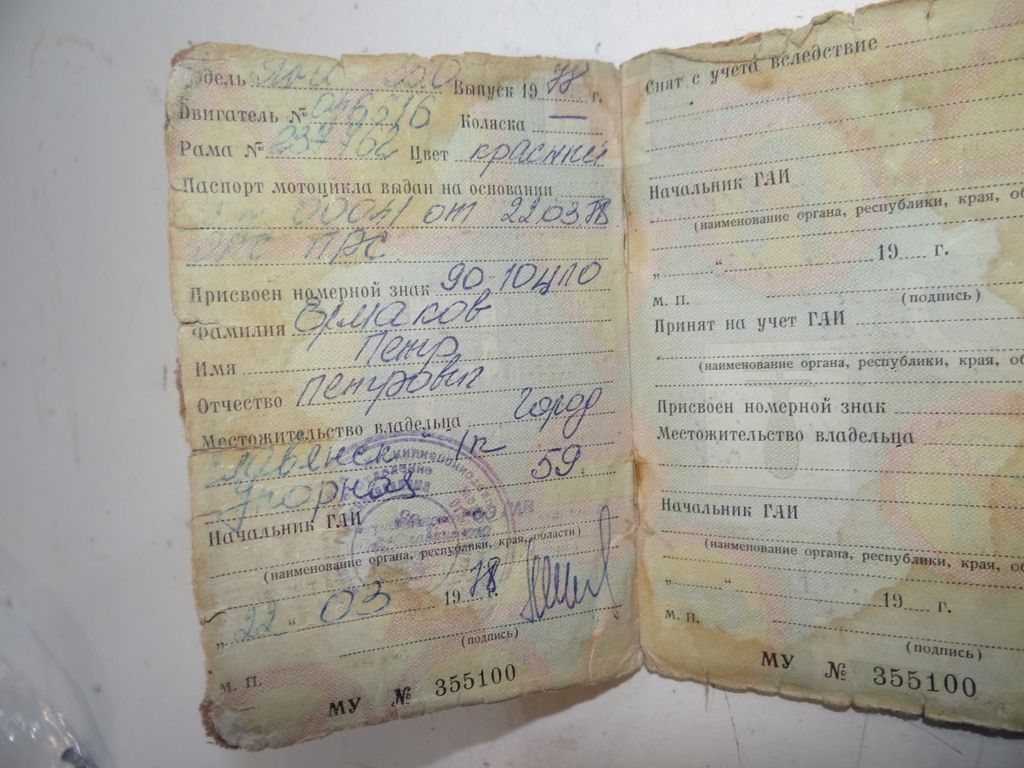 Модель Ява 350 Выпуск 19 78 г.
Двигатель № 046516 Коляска —
Рама № 237702 Цвет красный
Паспорт мотоцикла выдан на основании
00041 от 22 03 78
Присвоен номерной знак 90-10ЦПО
Фамилия Ермаков
Имя Петр
Отчество Петрович
Местожительство владельца город
59
Начальник ГАИ
(наименование органа, республики, края, области)
„ 22 “ 03 19 78 г.
(подпись)
М. П.
МУ № 355100
Снят с учета вследствие
Начальник ГАИ
(наименование органа, республики, края, об
„ “ 19 г.
М. П. (подпись)
Принят на учет ГАИ
(наименование органа, республики, края, об
Присвоен номерной знак
Местожительство владельца
Начальник ГАИ
(наименование органа, республики, края, об
„ “ 19 г.
М. П.
(подпись)
МУ № 355100